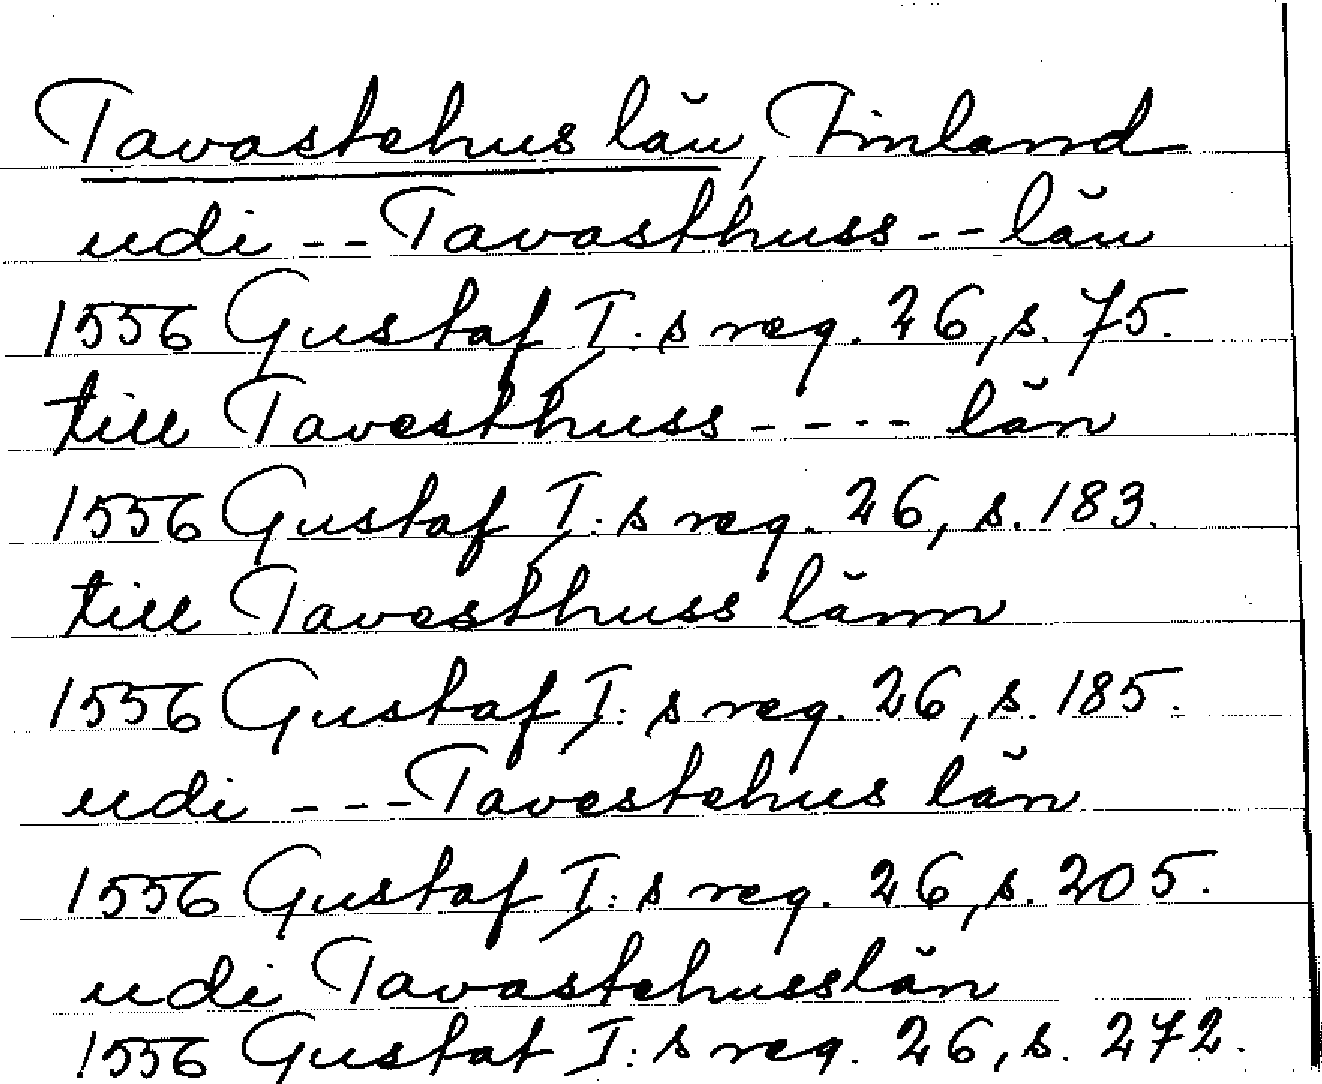 Tavastehus län, Finland
udi -- Tavasthuss -- län
1556 Gustaf I:s reg. 26, s. 75.
till Tavesthuss ---- län
1556 Gustaf I:s reg. 26, s. 183.
till Tavesthuss länn
1556 Gustaf I:s reg. 26, s. 185.
udi --- Tavestehus län
1556 Gustaf I:s reg. 26, s. 205.
udi Tavastehusslän
1556 Gustaf I:s reg. 26, s. 272.